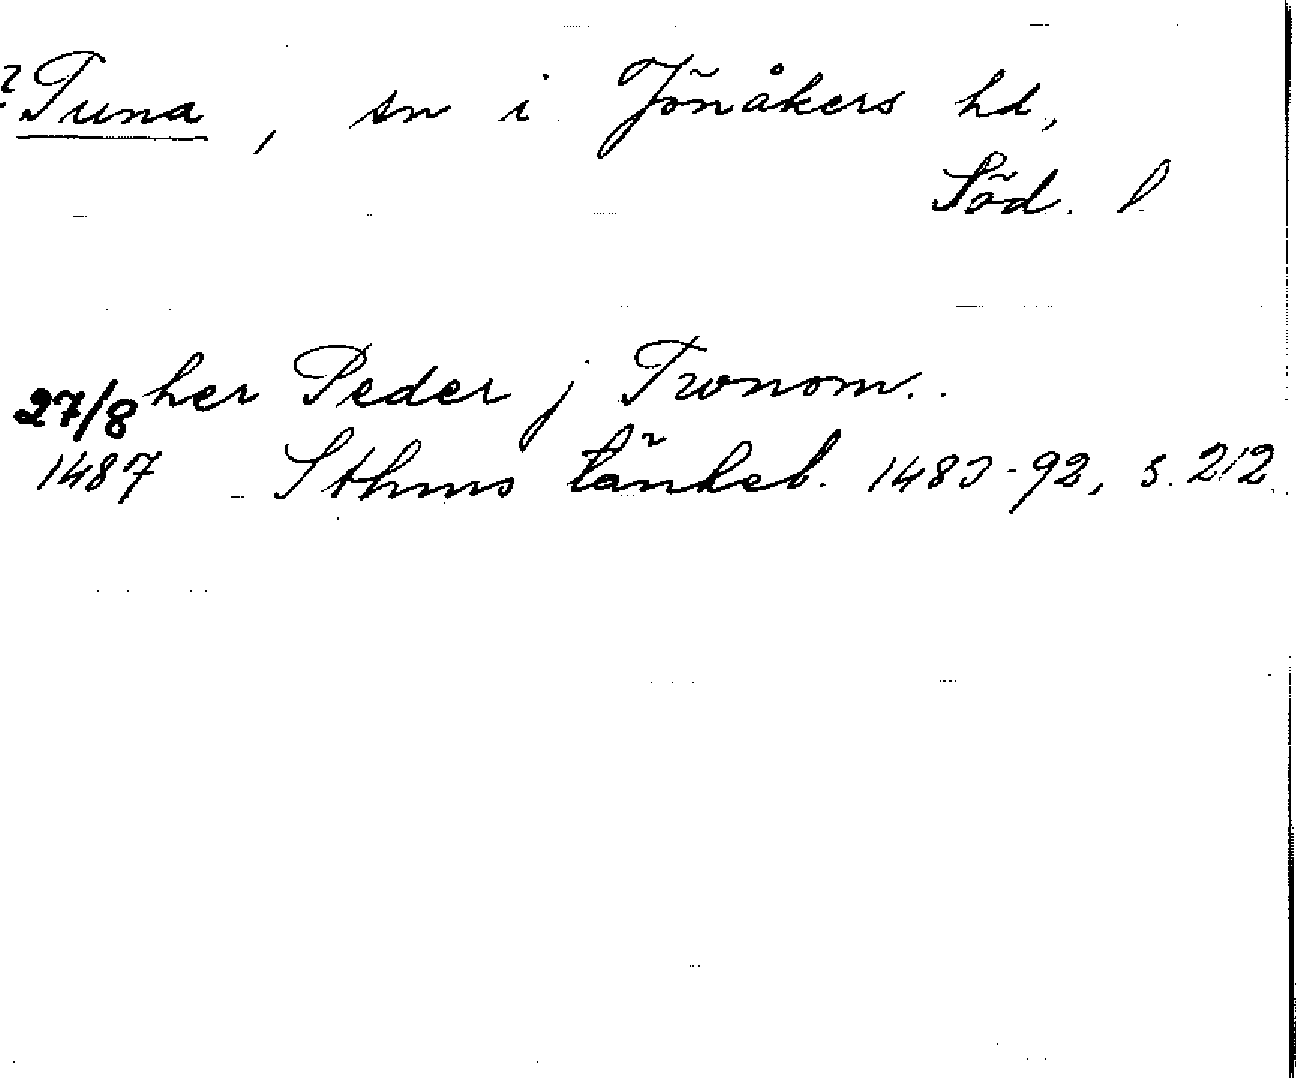 ? Tuna, sn i Jönåkers hd,
Söd. l
27/8 her Peder j Twnom..
1487 - Sthms tänkeb. 1483-92, s. 212